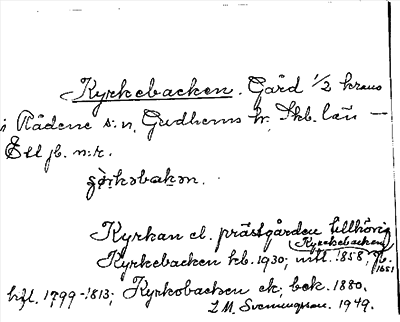 Kyrkebacken. Gård 1/2 krono
i Rådene s:n, Gudhems hr, Skb. län —
Ell jb. n:r.
Kyrkan el. prästgården tillhörig
(Kyrckebacken
Kyrkebacken kb. 1930; mtl. 1858; Jb. 1651
hfl. 1799-1813; Kyrkobacken ek. bek. 1880.
L M. Svenungsson. 1949.